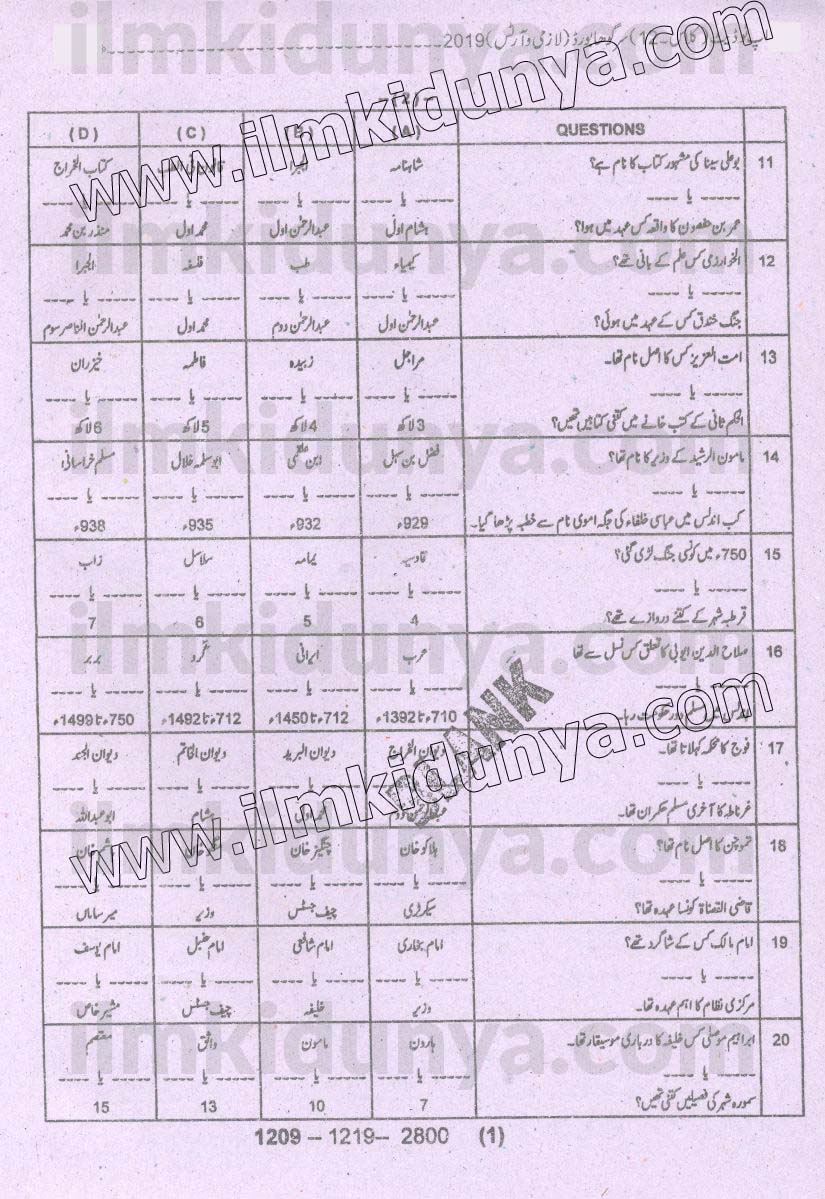 www.ilmkidunya.com
2019(لازمی و آرٹس) سرگودھا بورڈ (12
QUESTIONS (A) (C) (D)
11 بوعلی سینا کی مشہور کتاب کا نام ہے؟ شاہنامہ کتاب الخراج
---- یا ----
عمر بن حفصون کا واقعہ کس عہد میں ہوا؟ ہشام اول عبدالرحمٰن اول محمد اول منذر بن محمد
12 الخوارزمی کس علم کے بانی تھے؟ کیمیاء طب فلسفہ الجبرا
---- یا ----
جنگ خندق کس کے عہد میں ہوئی؟ عبدالرحمٰن اول عبدالرحمٰن دوم محمد اول عبدالرحمٰن الناصر سوم
13 امت العزیز کس کا اصل نام تھا۔ مراجل زبیدہ فاطمہ خیزران
---- یا ----
الحکم ثانی کے کتب خانے میں کتنی کتابیں تھیں؟ 3 لاکھ 4 لاکھ 5 لاکھ 6 لاکھ
14 مامون الرشید کے وزیر کا نام تھا؟ فضل بن سہل ابن علقمی ابو سلمہ خلال مسلم خراسانی
---- یا ----
کب اندلس میں عباسی خلفاء کی جگہ اموی نام سے خطبہ پڑھا گیا۔ 929ء 932ء 935ء 938ء
15 750ء میں کونسی جنگ لڑی گئی؟ قادسیہ یمامہ سلاسل زاب
---- یا ----
قرطبہ شہر کے کتنے دروازے تھے؟ 4 5 6 7
16 صلاح الدین ایوبی کا تعلق کس نسل سے تھا عرب ایرانی کُرد بربر
---- یا ----
اندلس میں مسلم دور حکومت رہا۔ 710ء تا 1392ء 712ء تا 1450ء 712ء تا 1492ء 750ء تا 1499ء
17 فوج کا محکمہ کہلاتا تھا۔ دیوان الخراج دیوان البرید دیوان الخاتم دیوان الجند
---- یا ----
غرناطہ کا آخری مسلم حکمران تھا۔ عبدالرحمٰن دوم محمد اول ہشام ابو عبداللہ
18 تموچن کا اصل نام تھا؟ ہلاکو خان چنگیز خان
---- یا ----
قاضی القضاۃ کونسا عہدہ تھا؟ سیکرٹری چیف جسٹس وزیر میر ساماں
19 امام مالک کس کے شاگرد تھے؟ امام بخاری امام شافعی امام حنبل امام یوسف
---- یا ----
مرکزی نظام کا اہم عہدہ تھا۔ وزیر خلیفہ چیف جسٹس مشیر خاص
20 ابراہیم موصلی کس خلیفہ کا درباری موسیقار تھا۔ ہارون مامون واثق معتصم
---- یا ----
سمورہ شہر کی فصیلیں کتنی تھیں؟ 7 10 13 15
www.ilmkidunya.com
1209 -- 1219-- 2800 (1)